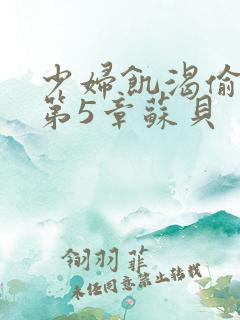 少婦飢渴偷
第5章蘇貝
翎羽菲
未经同意禁止转载